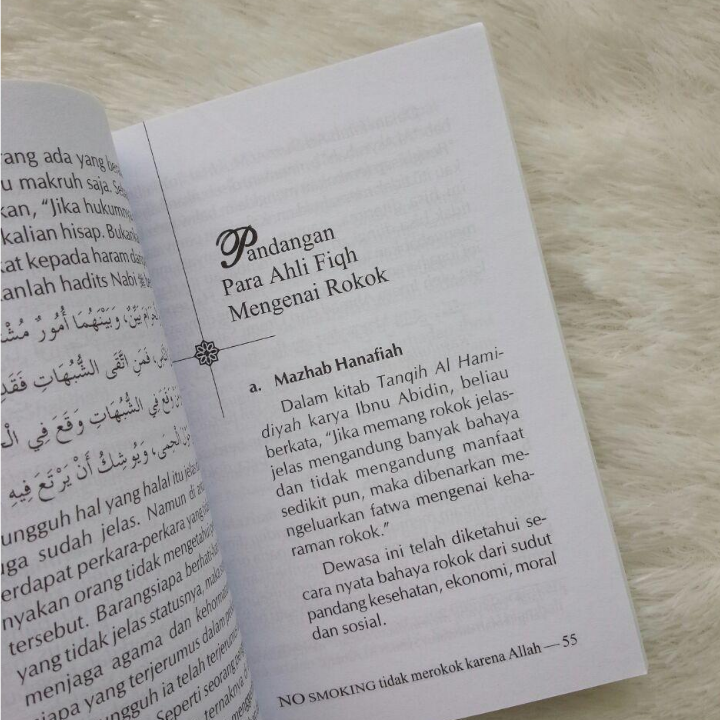 rang ada yang
u makruh saja.
kan, “Jika hukumnya
kalian hisap. Bukan
kat kepada haram dan
anlah hadits Nabi ﷺ
بَيِّنٌ، وَبَيْنَهُمَا أُمُورٌ
فَمَنِ اتَّقَى الشُّبُهَاتِ فَقَدِ
وَقَعَ فِي الشُّبُهَاتِ وَقَعَ فِي
الْحِمَى، وَيُوشِكُ أَنْ يَرْتَعَ فِيهِ
ungguh hal yang halal itu jelas
uga sudah jelas. Namun di
erdapat perkara-perkara yang
nyakan orang tidak mengetahui
tersebut. Barangsiapa berhati-
yang tidak jelas statusnya, maka
menjaga agama dan
siapa yang terjerumus dalam
ungguh ia telah terjerumus
Seperti seorang
ternaknya
Pandangan
Para Ahli Fiqh
Mengenai Rokok
a. Mazhab Hanafiah
Dalam kitab Tanqih Al Hami-
diyah karya Ibnu Abidin, beliau
berkata, “Jika memang rokok jelas-
jelas mengandung banyak bahaya
dan tidak mengandung manfaat
sedikit pun, maka dibenarkan me-
ngeluarkan fatwa mengenai keha-
raman rokok.”
Dewasa ini telah diketahui se-
cara nyata bahaya rokok dari sudut
pandang kesehatan, ekonomi, moral
dan sosial.
NO SMOKING tidak merokok karena Allah — 55